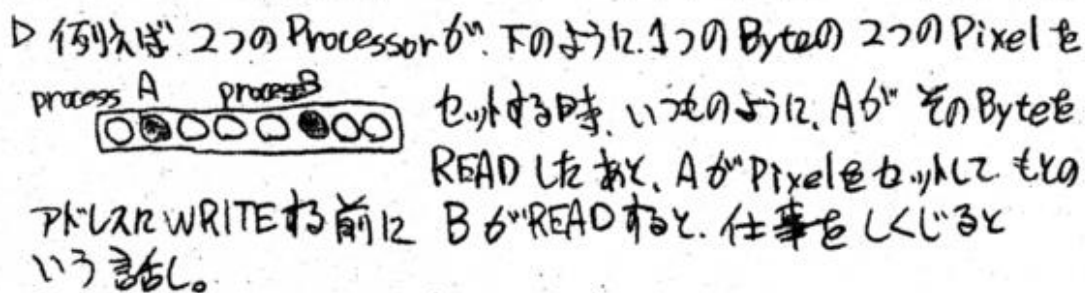 ▷ 例えば 2つのProcessorが、下のように、1つのByteの 2つのPixelを
process A processB
セットする時、いつものように、Aが そのByteを
READしたあと、AがPixelをセットして もとの
アドレスにWRITEする前に BがREADすると、仕事をしくじると
いう話し。